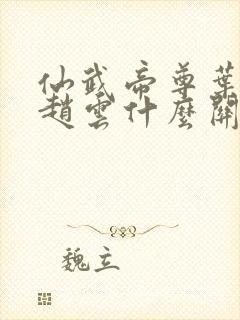 仙武帝尊葉
趙雲什麼關
魏立